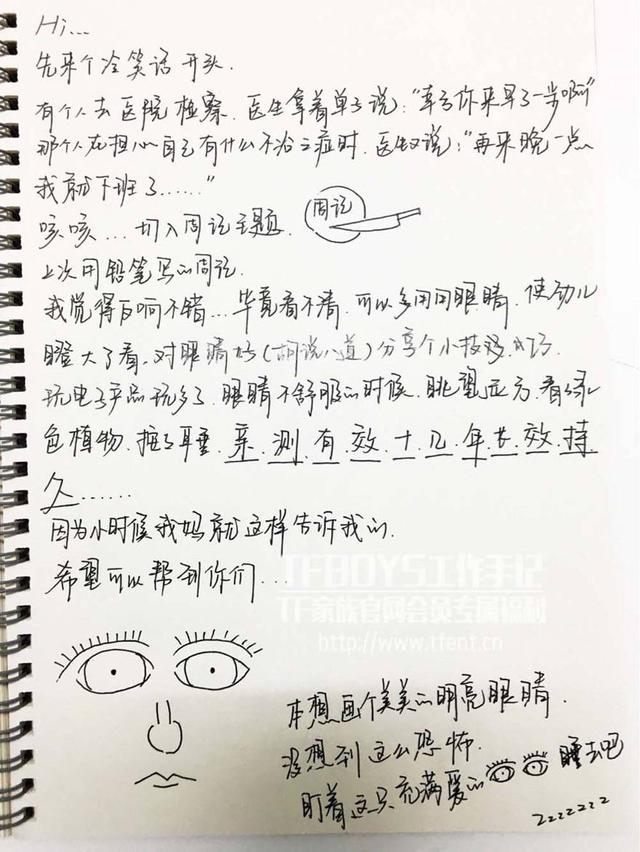 Hi...
先来个冷笑话开头.
有个人去医院检察. 医生拿着单子说:"幸亏你来早了一步啊"
那个人在担心自己有什么不治之症时. 医生又说:"再来晚一点
我就下班了......"
咳咳...切入周记主题.
周记
上次用铅笔写的周记.
我觉得反响不错...毕竟看不清. 可以多用用眼睛. 使劲儿
瞪大了看. 对眼睛好(胡说八道)分享个小技巧.
玩电子产品玩多了. 眼睛不舒服的时候. 眺望远方. 看看绿
色植物. 捏了耳垂. 亲测有效十几年长效持
久......
因为小时候我妈就这样告诉我的.
希望可以帮到你们...
TFBOYS工作手记
TF家族官网会员专属福利
http://www.tfent.cn
本想画个美美的明亮眼睛.
没想到这么恐怖.
盯着这只充满爱的 睡去吧
zzzzzzz